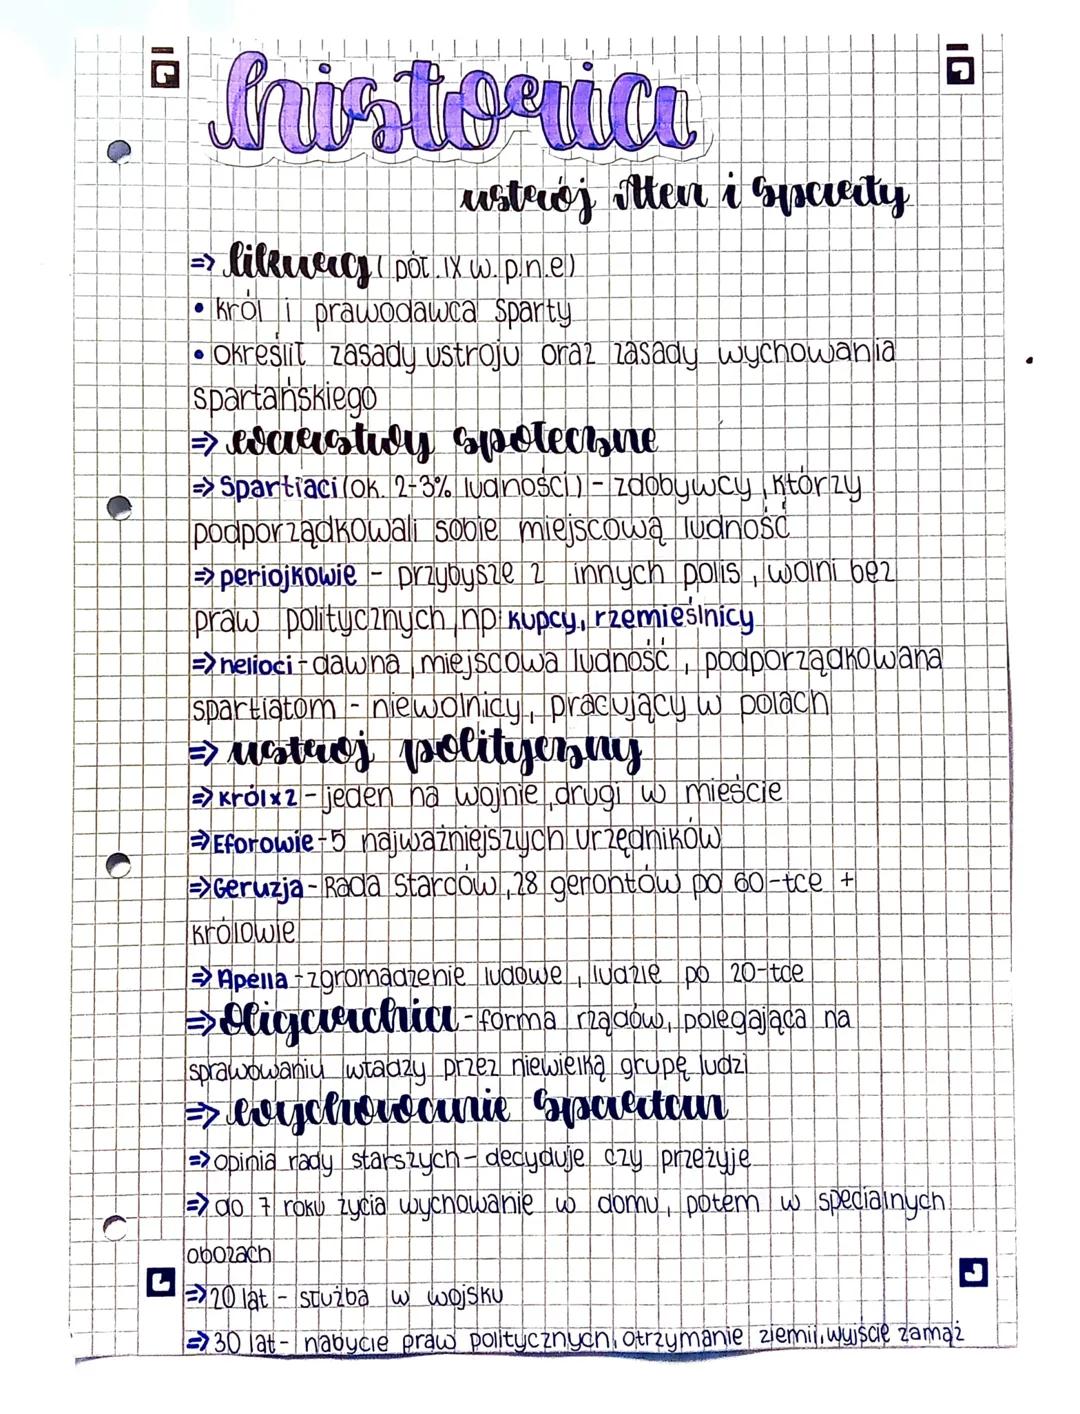 historia
ustrój Aten i Sparty
=> likurg (poł. IX w. p.n.e)
• król i prawodawca Sparty
• określił zasady ustroju oraz zasady wychowania
spartańskiego
=> warstwy społeczne
=> Spartiaci (ok. 2-3% ludności) - zdobywcy, którzy
podporządkowali sobie miejscową ludność
=> periojkowie - przybysze z innych polis, wolni bez
praw politycznych, np: kupcy, rzemieślnicy
=> helioci - dawna, miejscowa ludność, podporządkowana
spartiatom - niewolnicy, pracujący w polach
=> ustrój polityczny
=> Król x2 - jeden na wojnie, drugi w mieście
=> Eforowie - 5 najważniejszych urzędników
=> Geruzja - Rada Starców, 28 gerontów po 60-tce +
królowie
=> Apella - zgromadzenie ludowe, ludzie po 20-tce
=> Oligarchia - forma rządów, polegająca na
sprawowaniu władzy przez niewielką grupę ludzi
=> wychowanie Spartan
=> opinia rady starszych - decyduje czy przeżyje
=> do 7 roku życia wychowanie w domu, potem w specjalnych
obozach
=> 20 lat - służba w wojsku
=> 30 lat - nabycie praw politycznych, otrzymanie ziemii, wyjście zamąż